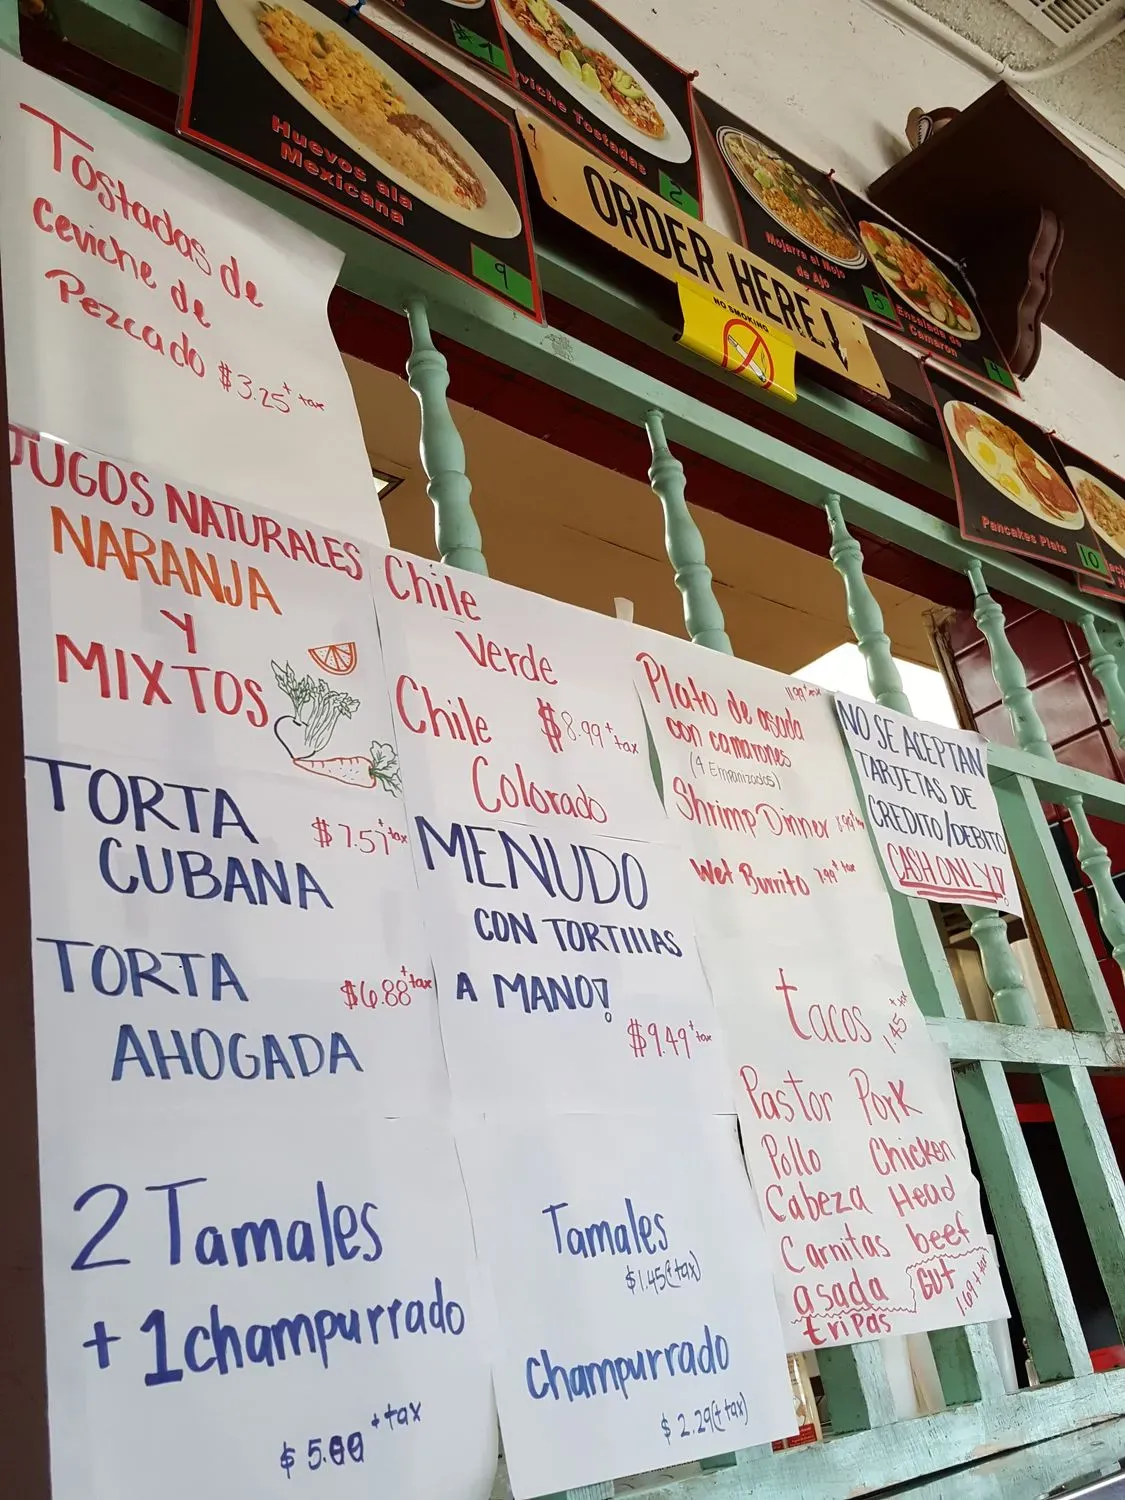 Tostadas de
Ceviche de
Pezcado $3.25 + tax
JUGOS NATURALES
NARANJA
Y
MIXTOS
TORTA
CUBANA
$7.57 + tax
TORTA
AHOGADA
$6.88 + tax
2 Tamales
+ 1 champurrado
$5.00 + tax
Chile
Verde
Chile
Colorado
$8.99 + tax
MENUDO
CON TORTIllAS
A MANO!
$9.49 + tax
Tamales
$1.45 (+ tax)
champurrado
$2.29 (+ tax)
Plato de asada
con camarones
(4 Empanizados)
11.99 + tax
Shrimp Dinner
Wet Burrito 7.99 + tax
tacos 1.45 + tax
Pastor Pork
Pollo Chicken
Cabeza Head
Carnitas beef
asada
tripas
Gut
1.69 + tax
NO SE ACEPTAN
TARJETAS DE
CREDITO/DEBITO
CASH ONLY!
Huevos ala
Mexicana
9
$1
Ceviche Tostadas
2
ORDER HERE
NO SMOKING
Mojarra al Mojo
de Ajo
5
Ensalada de
Camaron
4
Pancakes Plate
10